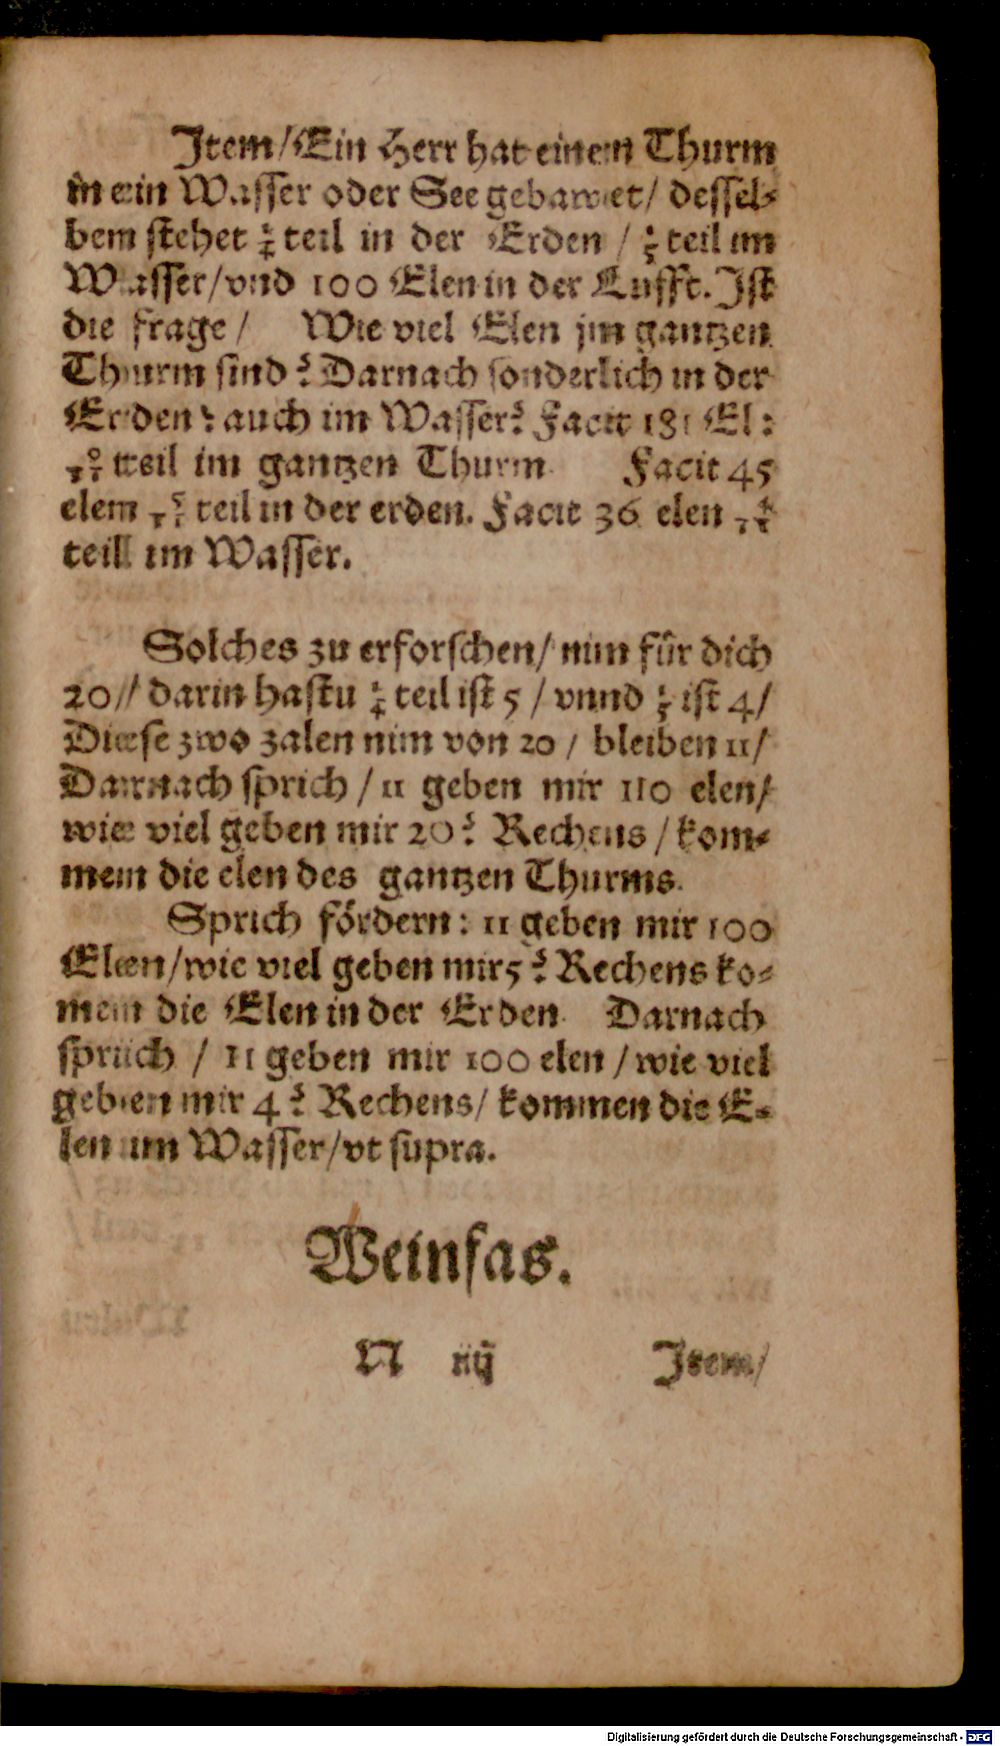 Item/ Ein Herr hat einen Thurm
in ein Wasser oder See gebawet/ dessel-
ben stehet 1/4 teil in der Erden / 1/5 teil im
Wasser/ vnd 100 Elen in der Lufft. Ist
die frage/ Wie viel Elen jm gantzen
Thurm sind? Darnach sonderlich in der
Erden? auch im Wasser? Facit 181 El:
9/11 teil im gantzen Thurm Facit 45
elen 5/11 teil in der erden. Facit 36 elen 4/11
teil im Wasser.
Solches zu erforschen/ nim für dich
20// darin hastu 1/4 teil ist 5 / vnnd 1/5 ist 4/
Diese zwo zalen nim von 20 / bleiben 11/
Darnach sprich / 11 geben mir 110 elen/
wie viel geben mir 20? Rechens / kom-
men die elen des gantzen Thurms.
Sprich fördern: 11 geben mir 100
Elen/ wie viel geben mir 5? Rechens ko-
men die Elen in der Erden Darnach
sprich / 11 geben mir 100 elen / wie viel
geben mir 4? Rechens/ kommen die E-
len im Wasser/ vt supra.
Weinfas.
N iij Item/
Digitalisierung gefördert durch die Deutsche Forschungsgemeinschaft - DFG